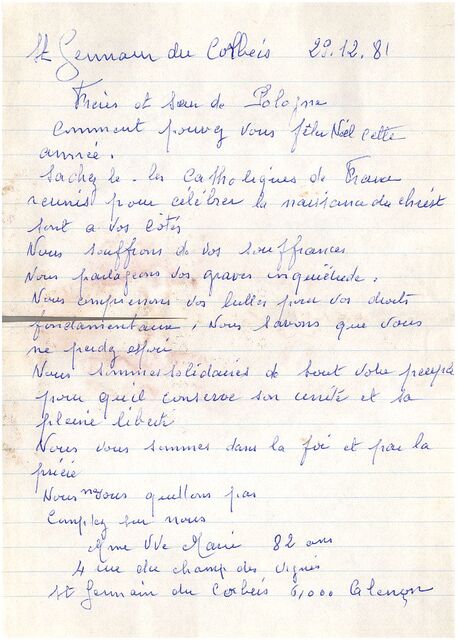 St Germain du Corbeis 29.12.81
Frères et sœur de Pologne
Comment pouvez vous fêter Noël cette
année.
Sachez le - les Catholiques de France
reunis pour célébrer la naissance du christ
sont a vos côtés
Nous souffrons de vos souffrances
Nous partageons vos graves inquiétude.
Nous comprenons vos luttes pour vos droits
fondamentaux ; Nous savons que vous
ne perdez espoir
Nous sommes solidaires de tout votre peuple
pour qu'il conserve son unité et sa
pleine liberté
Nous vous sommes dans la foi et par la
prière
Nous ne vous quittons pas
Comptez sur nous
Mme Vve Marie 82 ans
4 rue du champ des vignes
St Germain du Corbeis 61,000 Alençon